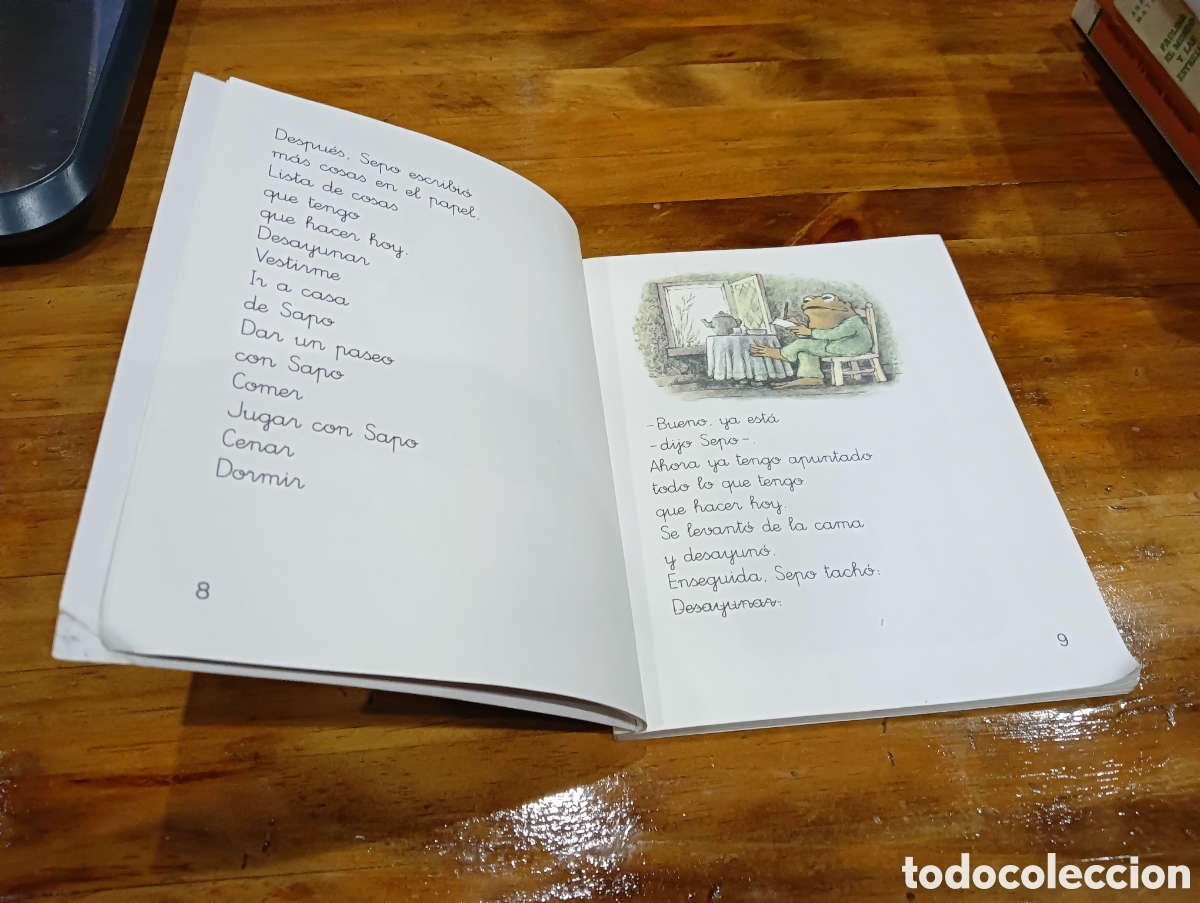 Después, Sepo escribió
más cosas en el papel.
Lista de cosas
que tengo
que hacer hoy.
Desayunar
Vestirme
Ir a casa
de Sapo
Dar un paseo
con Sapo
Comer
Jugar con Sapo
Cenar
Dormir
8
-Bueno, ya está
-dijo Sepo-.
Ahora ya tengo apuntado
todo lo que tengo
que hacer hoy.
Se levantó de la cama
y desayunó.
Enseguida, Sepo tachó:
Desayunar.
9
todocoleccion